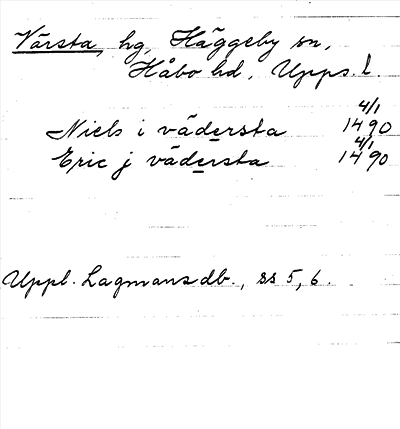 Värsta, hg, Häggeby sn,
Håbo hd, Upps. l.
Niels i vädersta 4/1 1490
Eric j vädersta 4/1 1490
Uppl. Lagmansdb., ss 5, 6.